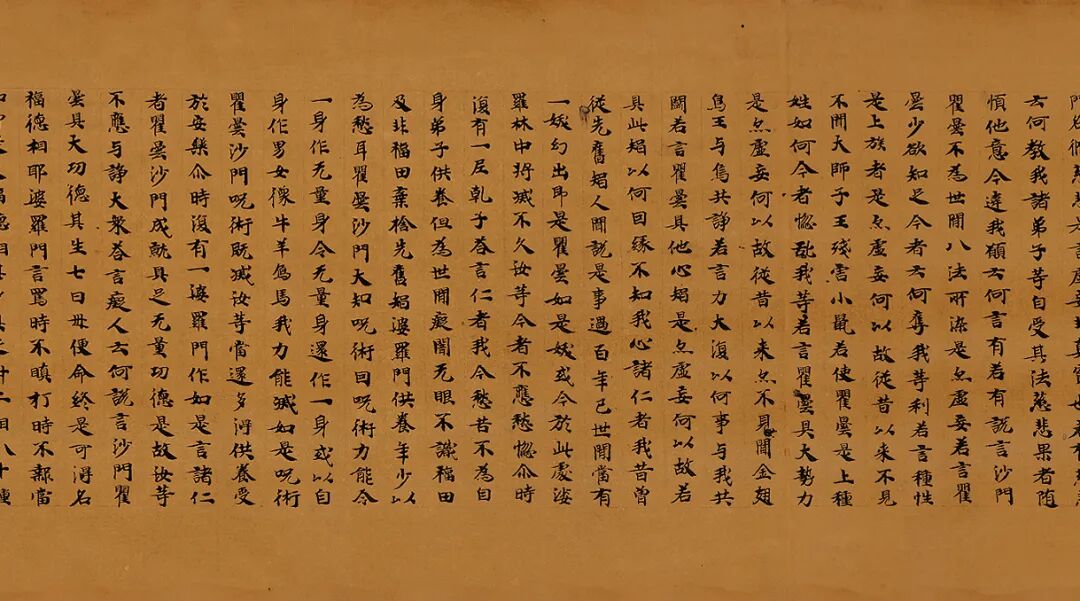 云何教我諸弟子等自受其法慈悲果者随
慎他意今違我願云何言有若有說言沙門
瞿曇不為世間八法所染是亦虛妄若言瞿
曇少欲知足今者云何奪我等利若言種性
是上族者是亦虛妄何以故從昔以来不見
不聞大師子王殘害小鼠若使瞿曇是上種
姓如何今者惱亂我等若言瞿曇具大勢力
是亦虛妄何以故從昔以来亦不見聞金翅
鳥王与烏共諍若言力大復以何事与我共
鬪若言瞿曇具他心智是亦虛妄何以故若
具此智以何因緣不知我心諸仁者我昔曾
從先舊智人聞說是事過百年已世間當有
一妖幻出即是瞿曇如是妖或今於此處娑
羅林中將滅不久汝等今者不應愁惱尒時
復有一尼乹子荅言仁者我今愁苦不為自
身弟子供養但為世間癡闇无眼不識福田
及非福田棄捨先舊智婆羅門供養年少以
為愁耳瞿曇沙門大知呪術因呪術力能令
一身作无量身令无量身還作一身或以自
身作男女像牛羊鳥馬我力能滅如是呪術
瞿曇沙門呪術既滅汝等當還多淂供養受
於安樂尒時復有一婆羅門作如是言諸仁
者瞿曇沙門成就具足无量功德是故汝等
不應与諍大衆荅言癡人云何說言沙門瞿
曇具大功德其生七日母便命終是可淂名
福德相耶婆羅門言罵時不瞋打時不報當